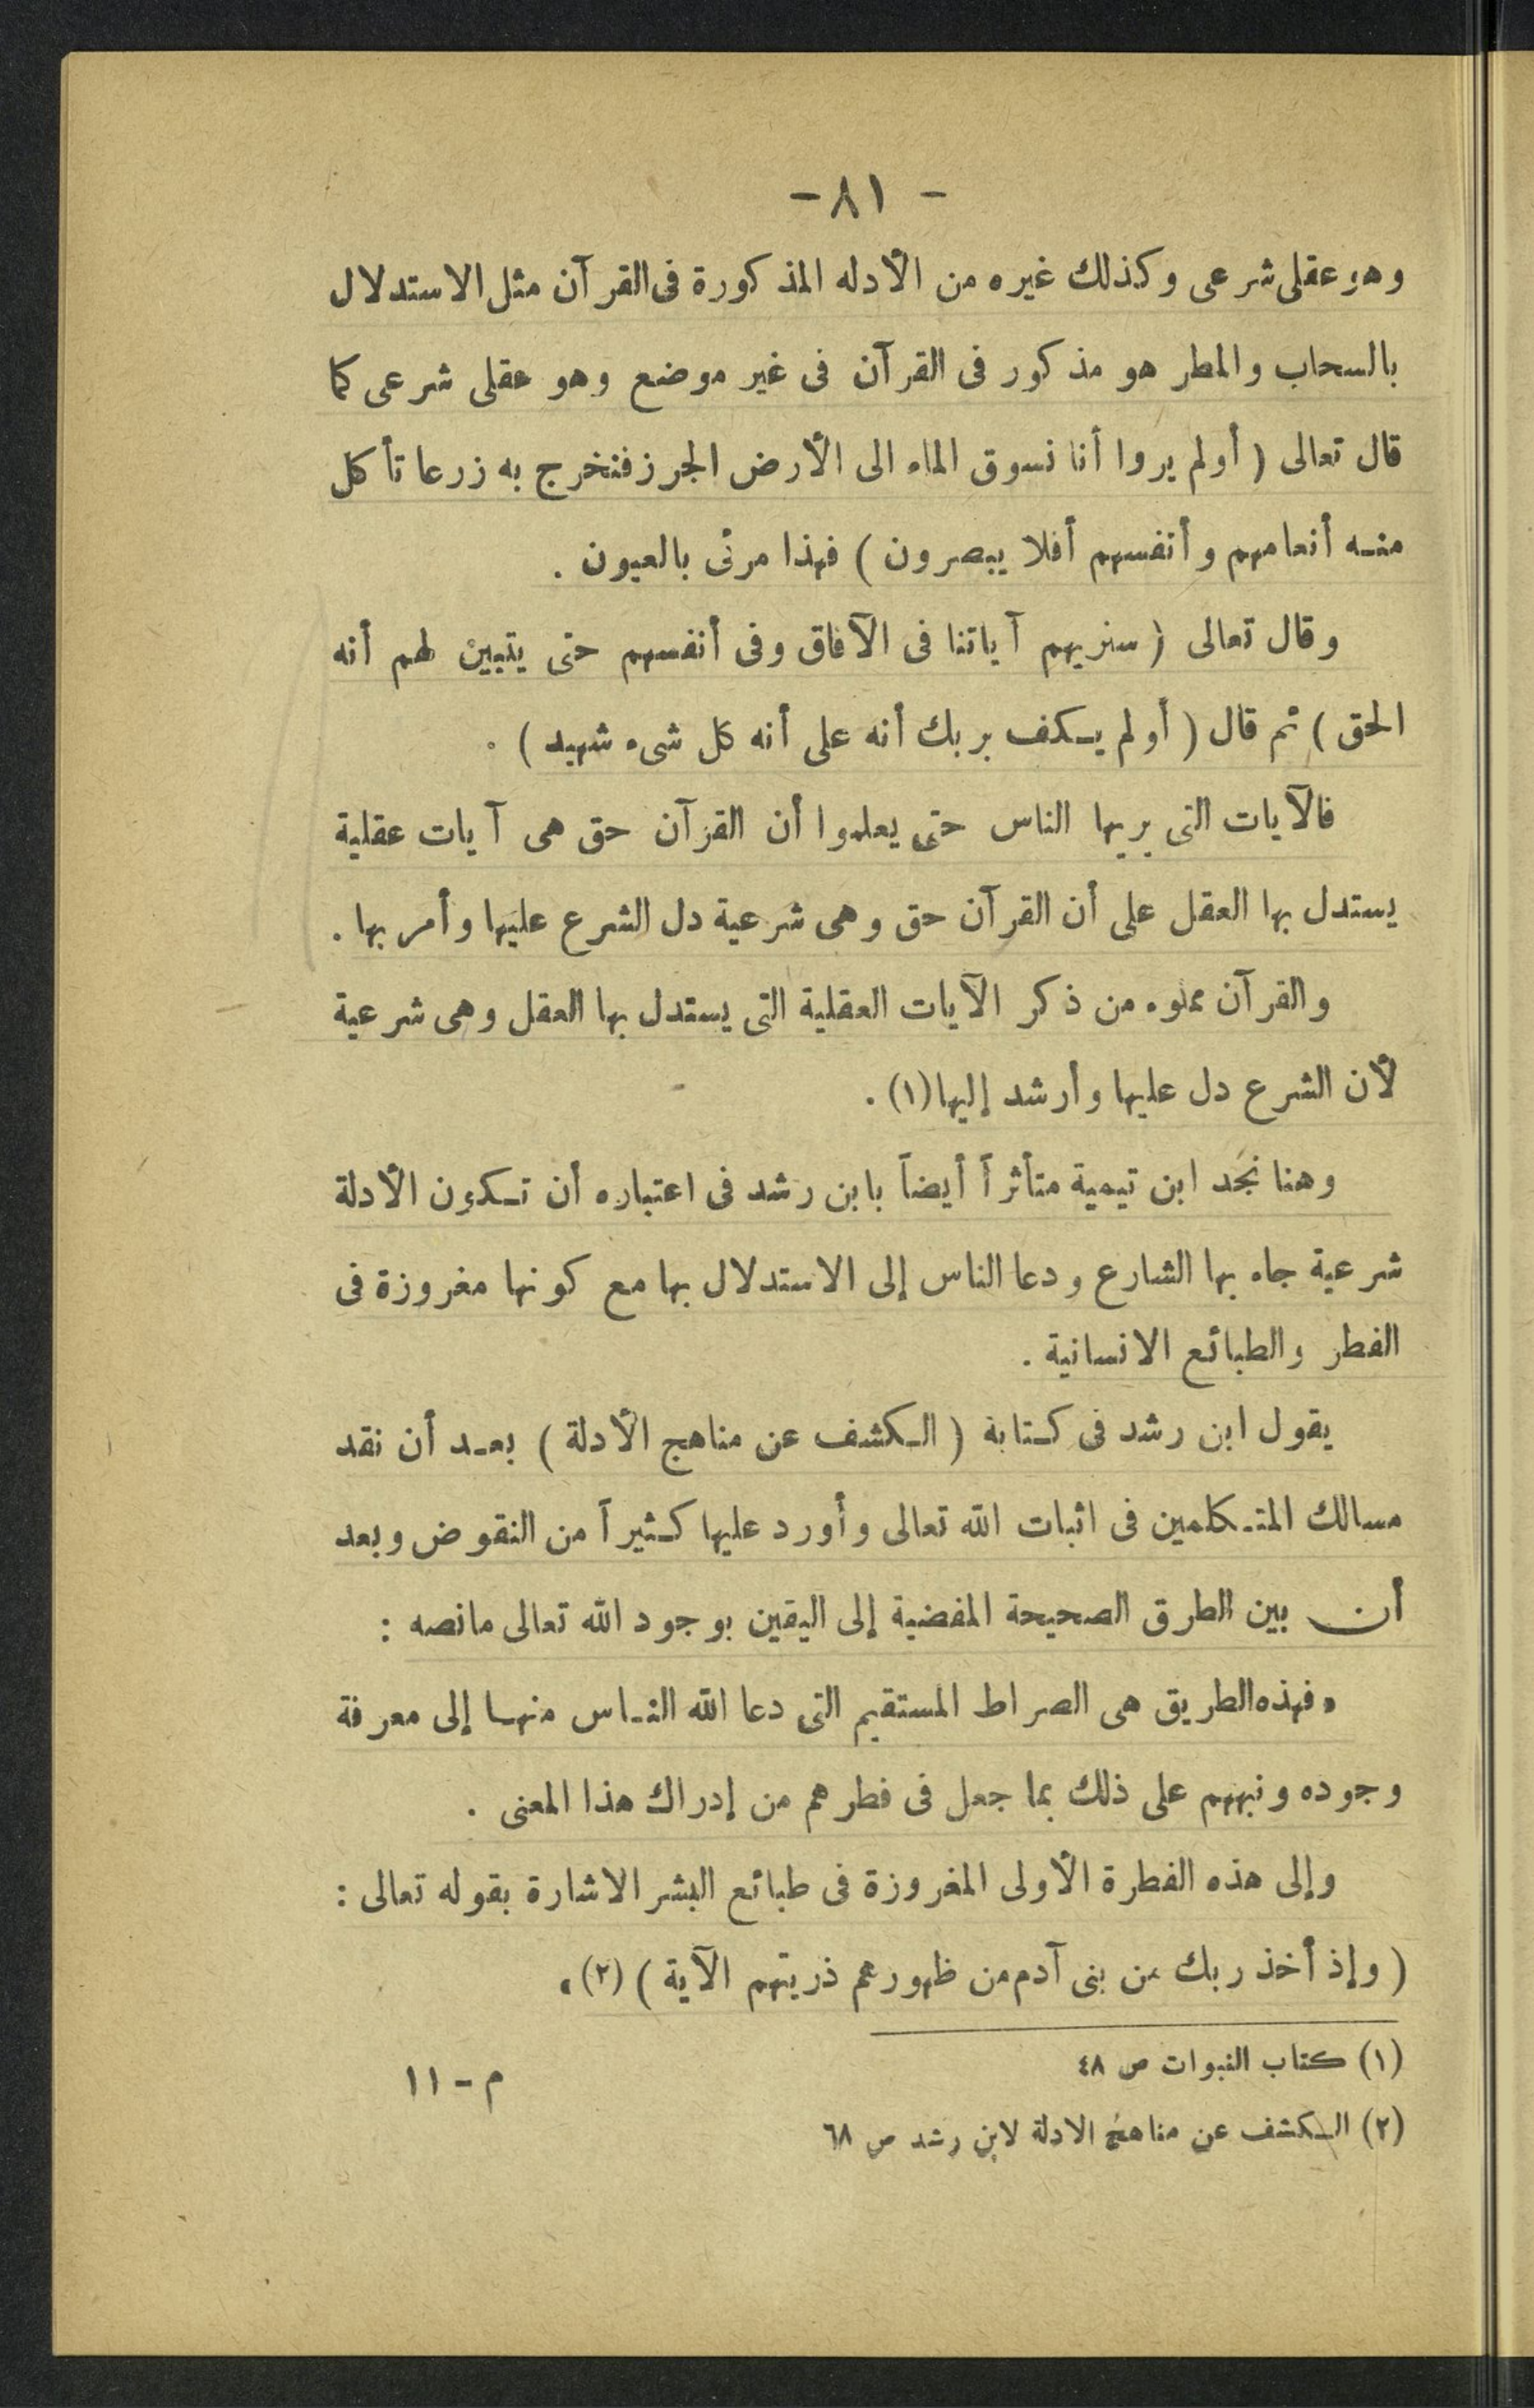 - ٨١ -
وهو عقلى شرعى وكذلك غيره من الأدله المذكورة فى القرآن مثل الاستدلال
بالسحاب والمطر هو مذكور فى القرآن فى غير موضع وهو عقلى شرعى كما
قال تعالى ( أولم يروا أنا نسوق الماء الى الأرض الجرز فنخرج به زرعا تأكل
منه أنعامهم وأنفسهم أفلا يبصرون ) فهذا مرئى بالعيون .
وقال تعالى ( سنريهم آياتنا فى الآفاق وفى أنفسهم حتى يتبين لهم أنه
الحق ) ثم قال ( أولم يكف بربك أنه على أنه كل شىء شهيد ) .
فالآيات التى يريها الناس حتى يعلموا أن القرآن حق هى آيات عقلية
يستدل بها العقل على أن القرآن حق وهى شرعية دل الشرع عليها وأمر بها .
والقرآن مملوء من ذكر الآيات العقلية التى يستدل بها العقل وهى شرعية
لأن الشرع دل عليها وأرشد إليها (١) .
وهنا نجد ابن تيمية متأثراً أيضاً بابن رشد فى اعتباره أن تكون الأدلة
شرعية جاء بها الشارع ودعا الناس إلى الاستدلال بها مع كونها مغروزة فى
الفطر والطبائع الانسانية .
يقول ابن رشد فى كتابة ( الكشف عن مناهج الأدلة ) بعد أن نقد
مسالك المتكلمين فى اثبات الله تعالى وأورد عليها كثيراً من النقوض وبعد
أن بين الطرق الصحيحة المفضية إلى اليقين بوجود الله تعالى مانصه :
« فهذه الطريق هى الصراط المستقيم التى دعا الله الناس منها إلى معرفة
وجوده ونبههم على ذلك بما جعل فى فطرهم من إدراك هذا المعنى .
وإلى هذه الفطرة الأولى المغروزة فى طبائع البشر الاشارة بقوله تعالى :
( وإذ أخذ ربك من بنى آدم من ظهورهم ذريتهم الآية ) (٢) »
(١) كتاب النبوات ص ٤٨
م - ١١
(٢) الكشف عن مناهج الادلة لابن رشد ص ٦٨